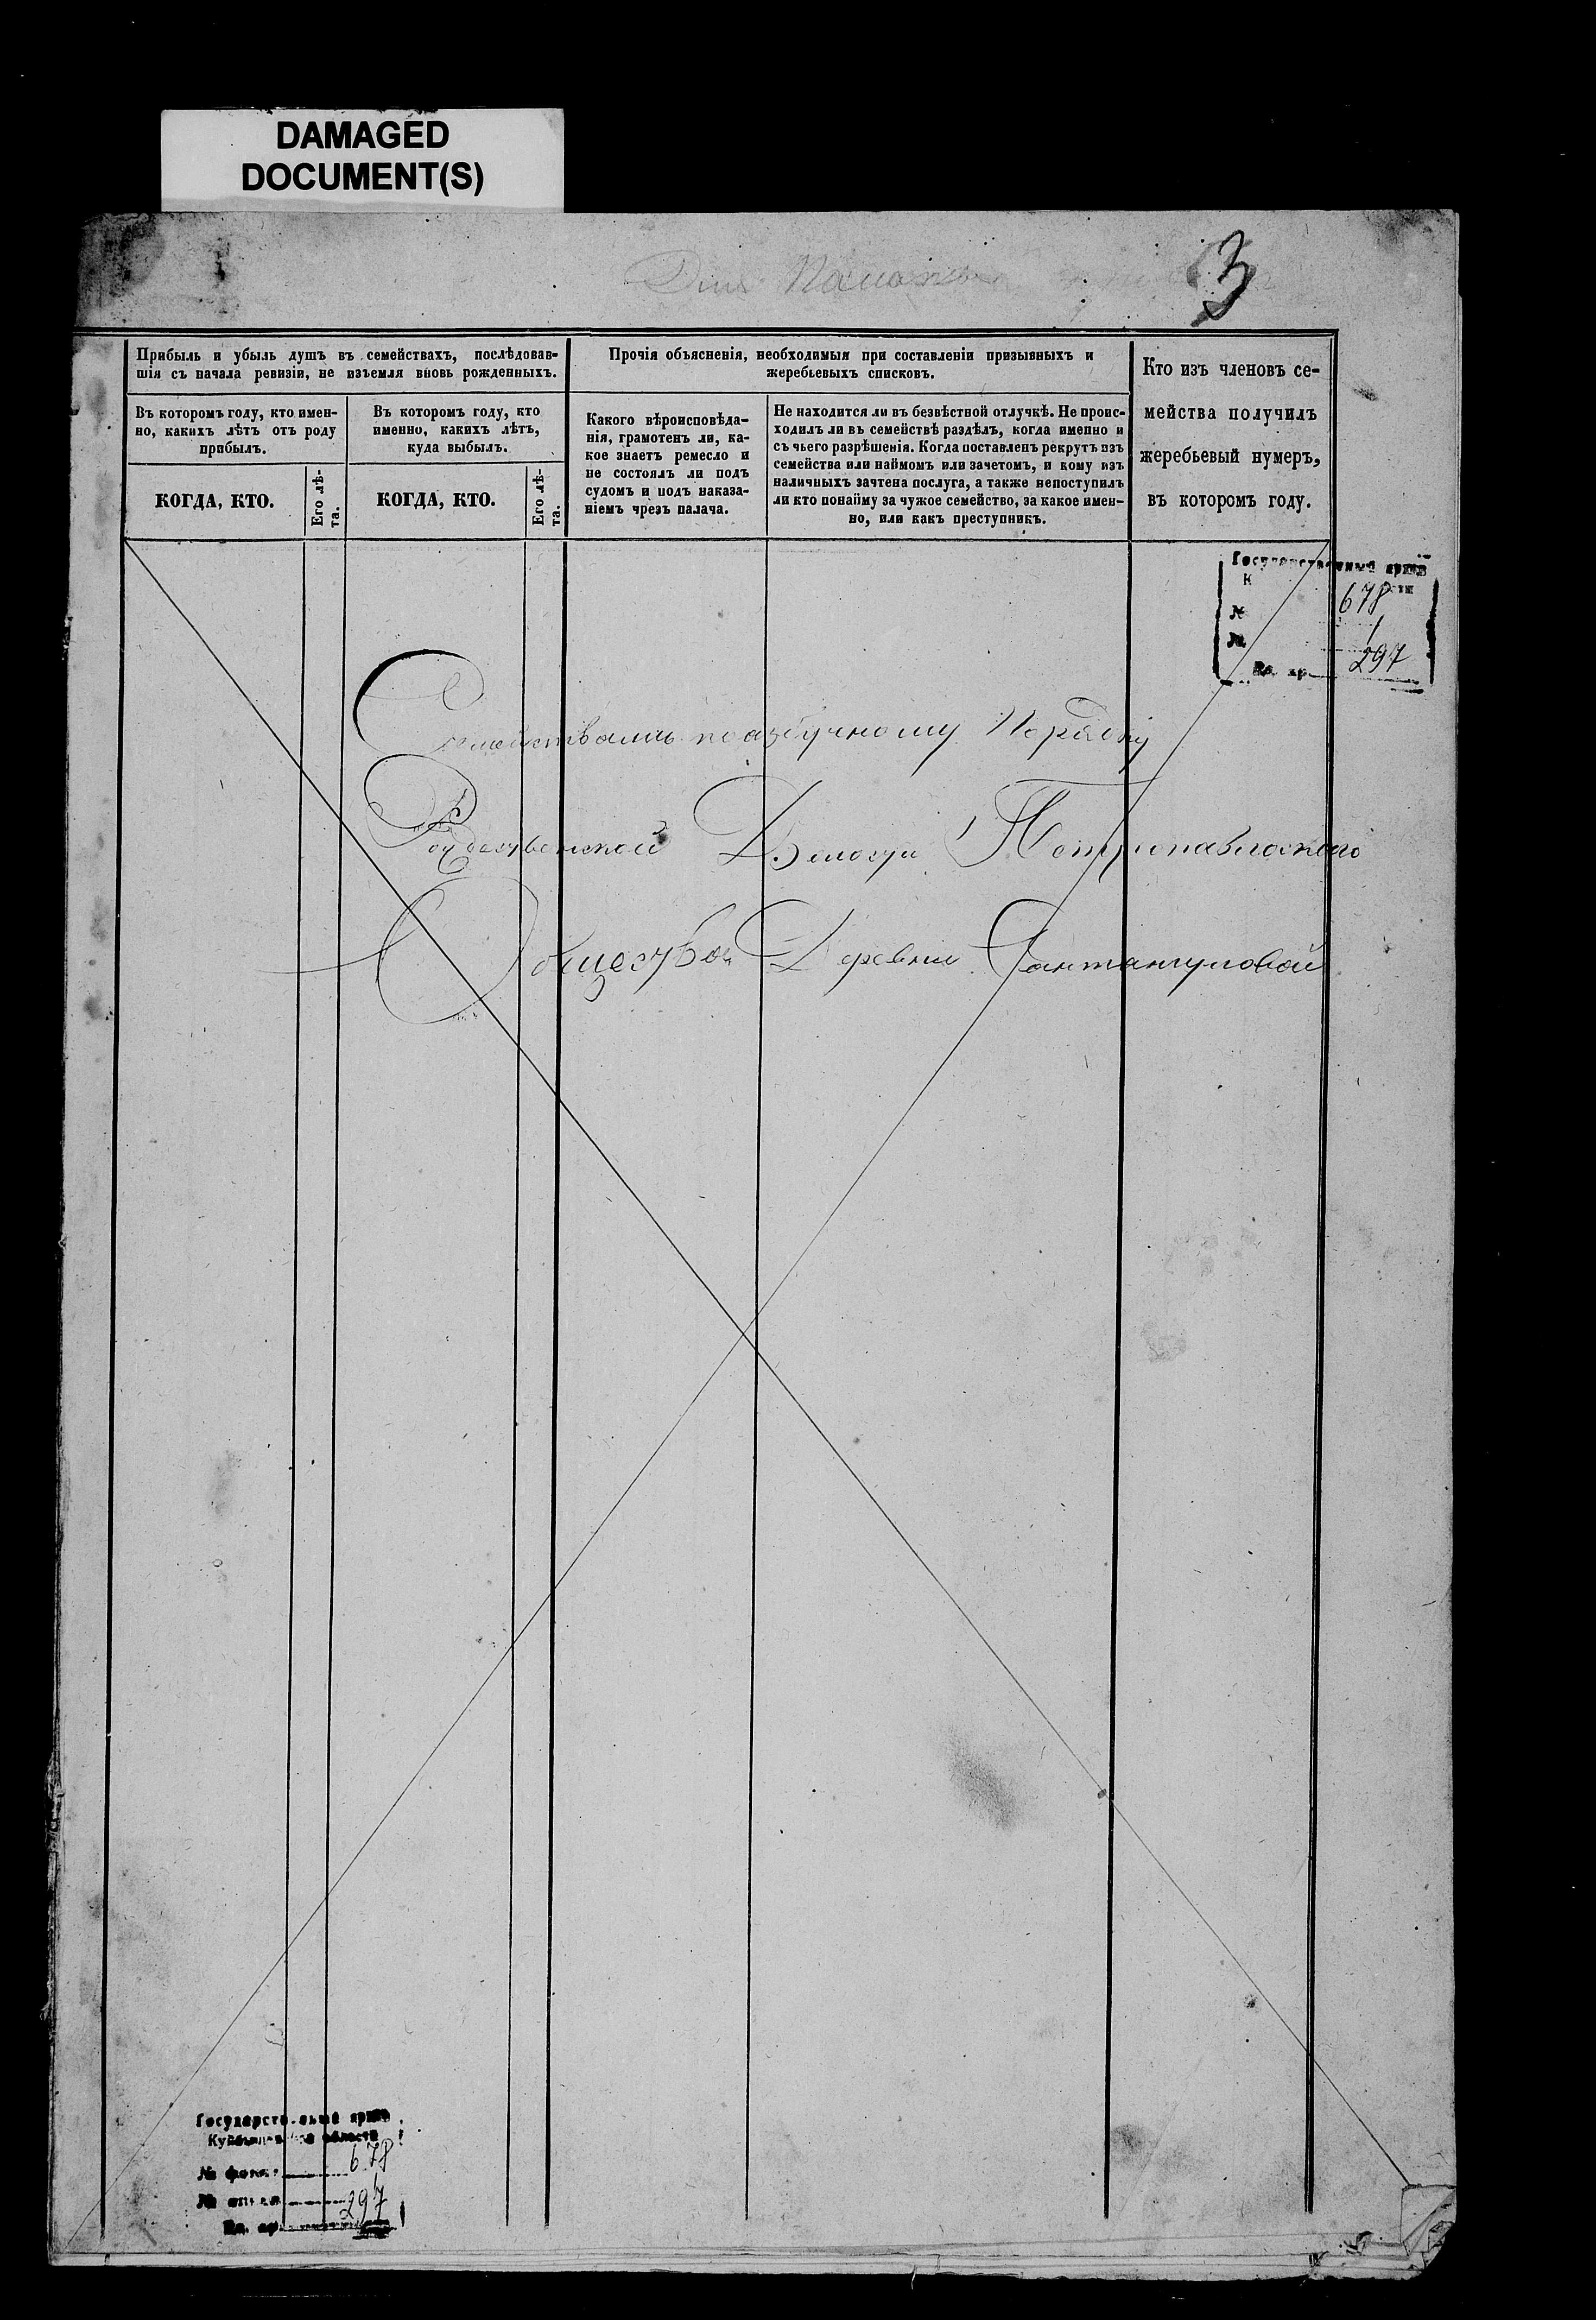 DAMAGED
DOCUMENT(S)
3
Прибыль и убыль душъ въ семействахъ, послѣдовав-
шія съ начала ревизіи, не изъемля вновь рожденныхъ.
Въ которомъ году, кто имен-
но, какихъ лѣтъ отъ роду
прибылъ.
КОГДА, КТО.
Его лѣ-
та.
Въ которомъ году, кто
именно, какихъ лѣтъ,
куда выбылъ.
КОГДА, КТО.
Его лѣ-
та.
Прочія объясненія, необходимыя при составленіи призывныхъ и
жеребьевыхъ списковъ.
Какого вѣроисповѣда-
нія, грамотенъ ли, ка-
кое знаетъ ремесло и
не состоялъ ли подъ
судомъ и подъ наказа-
ніемъ чрезъ палача.
Не находится ли въ безвѣстной отлучкѣ. Не проис-
ходилъ ли въ семействѣ раздѣлъ, когда именно и
съ чьего разрѣшенія. Когда поставленъ рекрутъ изъ
семейства или наймомъ или зачетомъ, и кому изъ
наличныхъ зачтена послуга, а также непоступилъ
ли кто понайму за чужое семейство, за какое имен-
но, или какъ преступникъ.
Кто изъ членовъ се-
мейства получилъ
жеребьевый нумеръ,
въ которомъ году.
Государственный архив
678
1
297
Семействамъ по азбучному Порядку
Волости Петропавловского
Общества Деревни
Государственный архив
Куйбышевской области
№ фонда 678
№ описи 1
Ед. хр. 297